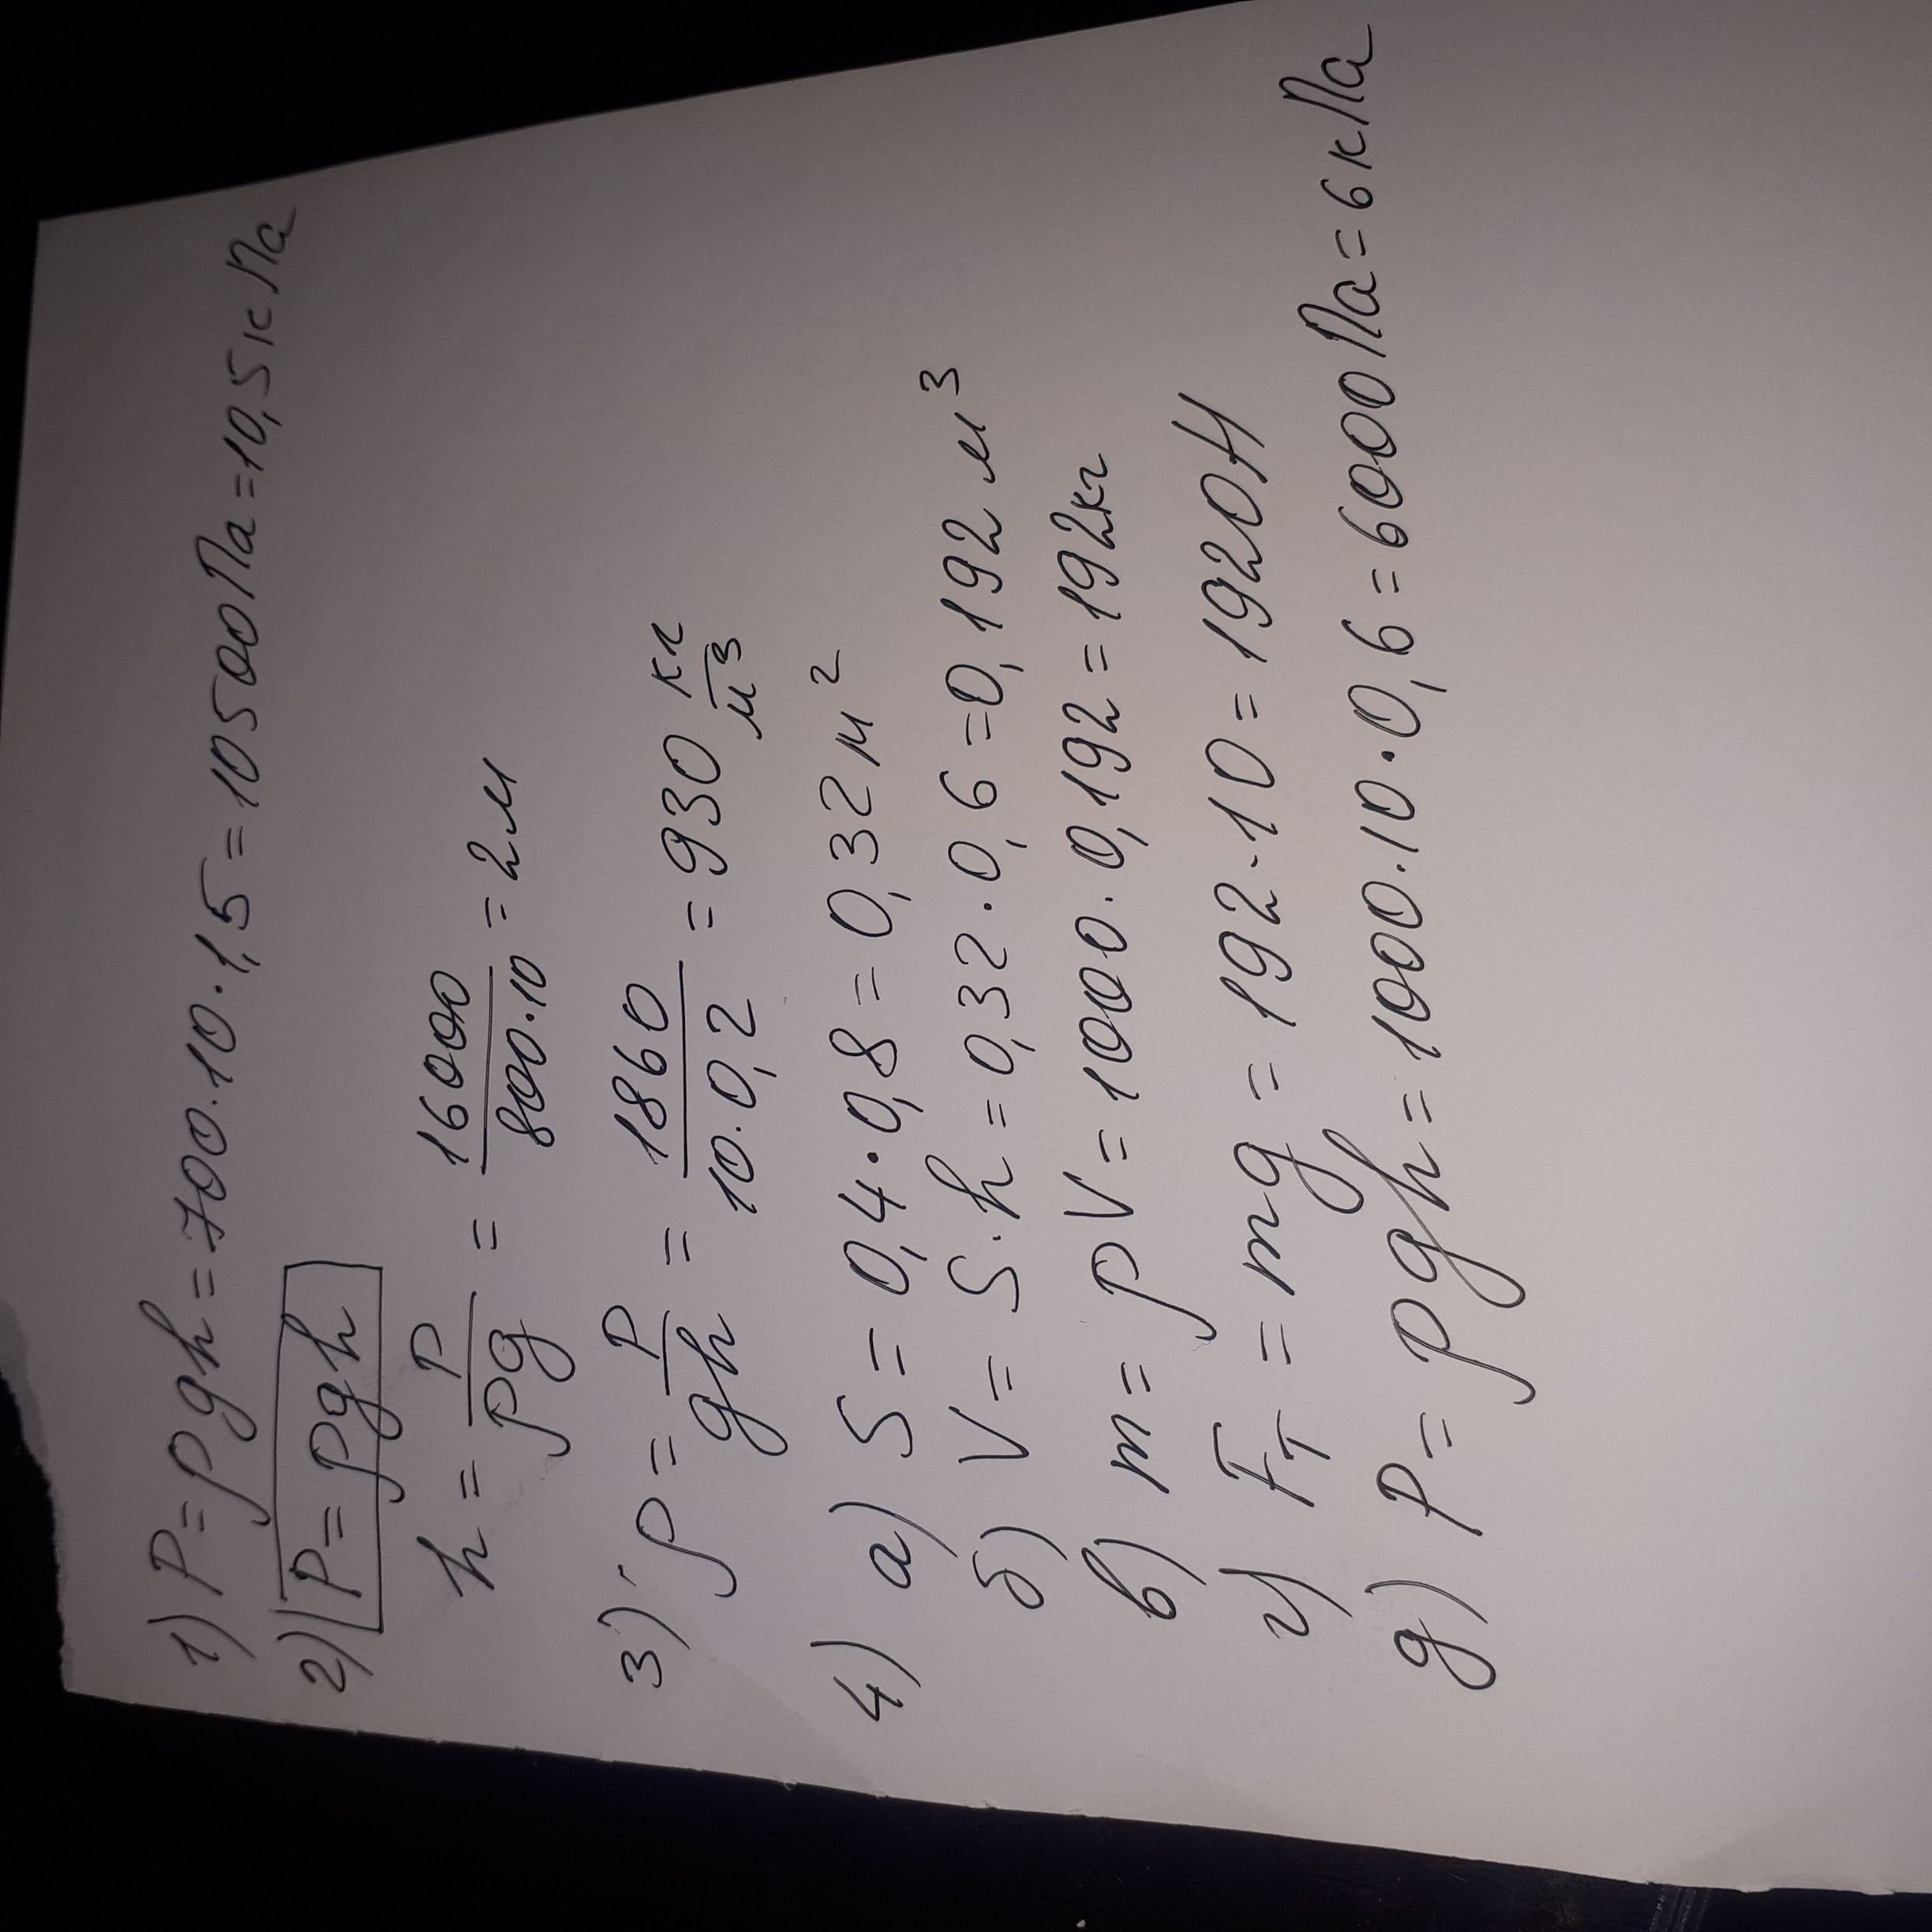 1) P = ρgh = 700·10·1,5 = 10500Па = 10,5кПа
2) P = ρgh
h = P/ρg = 16000/800·10 = 2м
3) ρ = P/gh = 1860/10·0,2 = 930 кг/м³
4) а) S = 0,4·0,8 = 0,32м²
б) V = S·h = 0,32·0,6 = 0,192м³
в) m = ρV = 1000·0,192 = 192кг
г) Fт = mg = 192·10 = 1920Н
д) P = ρgh = 1000·10·0,6 = 6000Па = 6кПа